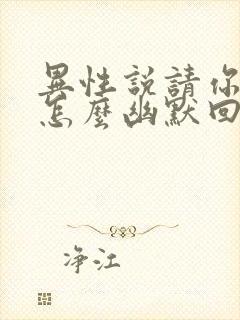 異性説請你
怎麼幽默回
净江